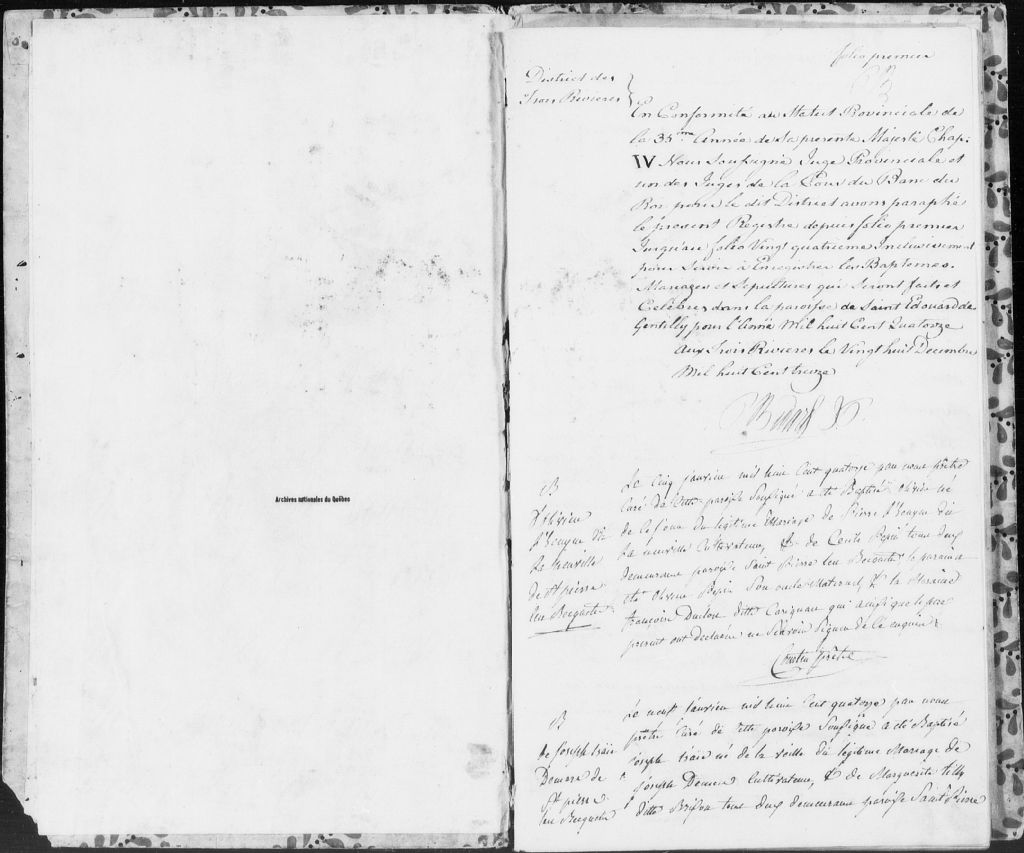 Archives nationales du Québec
folio premier
District des
Trois Rivieres
En Conformité au Statut Provinciale de
la 35ème Année de Sa presente Majesté Chap:
IV Nous Soussigné Juge Provinciale et
un des Juges de la Cour du Banc du
Roi pour le dit District avons paraphé
le present Registre depuis folio premier
Jusqu'au folio Vingt quatrieme Inclusivement
pour Servir à Enregistrer les Baptemes.
Mariages et Sepultures qui Seront faits et
Celébrés dans la paroisse de Saint Edouard de
Gentilly pour l'Année Mil huit Cent Quatorze
Aux Trois Rivieres le Vingt huit Decembre
Mil huit Cent treize
Bedard
B
D'Olivier
de St pierre
les Becquets
Le Cinq Janvier mil huit Cent quatorze par nous prêtre
Curé de Cette paroisse Soussigné a été Baptisé Olivier né
de Ce Jour du legitime Mariage de Pierre
la neuville Cultivateur, & de Pepin tous deux
demeurans paroisse Saint Pierre les Becquets, le parain a
été Olivier Pepin Son oncle Maternel, & la Maraine
françoise ditte Carignan qui ainsi que le pere
present ont declaré ne Savoir Signer de Ce enquis.
prêtre
B
de Joseph
Demers de
St pierre
les Becquets
Le neuf Janvier mil huit Cent quatorze par nous
prêtre Curé de Cette paroisse Soussigné a été Baptisé
Joseph né de la veille du légitime Mariage de
Joseph Demers Cultivateur, & de Marguerite Tilly
ditte Brisson tous deux demeurans paroisse Saint Pierre